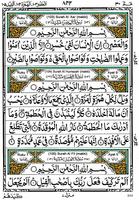 (103) Surah Al 'Asr (makki)
بِسْمِ اللهِ الرَّحْمٰنِ الرَّحِيْمِ
وَالْعَصْرِ ۝ اِنَّ الْاِنْسَانَ لَفِيْ خُسْرٍ ۝ اِلَّا الَّذِيْنَ اٰمَنُوْا
وَعَمِلُوا الصّٰلِحٰتِ وَتَوَاصَوْا بِالْحَقِّ وَتَوَاصَوْا بِالصَّبْرِ ۝
(104) Surah Al Humazah (makki)
بِسْمِ اللهِ الرَّحْمٰنِ الرَّحِيْمِ
وَيْلٌ لِّكُلِّ هُمَزَةٍ لُّمَزَةٍ ۝ الَّذِيْ جَمَعَ مَالًا وَّعَدَّدَهٗ ۝ يَحْسَبُ
اَنَّ مَالَهٗۤ اَخْلَدَهٗ ۝ كَلَّا لَيُنْۢبَذَنَّ فِي الْحُطَمَةِ ۝ وَمَاۤ اَدْرٰىكَ
مَا الْحُطَمَةُ ۝ نَارُ اللهِ الْمُوْقَدَةُ ۝ الَّتِيْ تَطَّلِعُ عَلَى
الْاَفْـِٕدَةِ ۝ اِنَّهَا عَلَيْهِمْ مُّؤْصَدَةٌ ۝ فِيْ عَمَدٍ مُّمَدَّدَةٍ ۝
(105) Surah Al Fil (makki)
بِسْمِ اللهِ الرَّحْمٰنِ الرَّحِيْمِ
اَلَمْ تَرَ كَيْفَ فَعَلَ رَبُّكَ بِاَصْحٰبِ الْفِيْلِ ۝ اَلَمْ